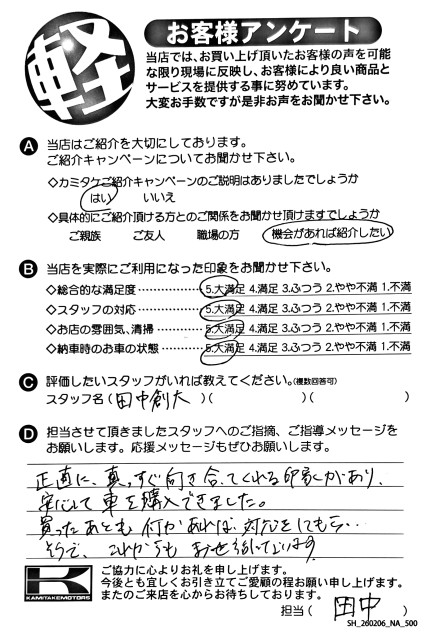 軽
お客様アンケート
当店では、お買い上げ頂いたお客様の声を可能
な限り現場に反映し、お客様により良い商品と
サービスを提供する事に努めています。
大変お手数ですが是非お声をお聞かせ下さい。
A 当店はご紹介を大切にしております。
ご紹介キャンペーンについてお聞かせ下さい。
◇カミタケご紹介キャンペーンのご説明はありましたでしょうか
はい いいえ
◇具体的にご紹介頂ける方とのご関係をお聞かせ頂けますでしょうか
ご親族 ご友人 職場の方 機会があれば紹介したい
B 当店を実際にご利用になった印象をお聞かせ下さい。
◇総合的な満足度 5.大満足 4.満足 3.ふつう 2.やや不満 1.不満
◇スタッフの対応 5.大満足 4.満足 3.ふつう 2.やや不満 1.不満
◇お店の雰囲気、清掃 5.大満足 4.満足 3.ふつう 2.やや不満 1.不満
◇納車時のお車の状態 5.大満足 4.満足 3.ふつう 2.やや不満 1.不満
C 評価したいスタッフがいれば教えてください。(複数回答可)
スタッフ名(田中創大)( )( )
D 担当させて頂きましたスタッフへのご指摘、ご指導メッセージを
お願いします。応援メッセージもぜひお願いします。
正直に、真っすぐ向き合ってくれる印象があり、
安心して車を購入できました。
買ったあとも何かあれば、対応をしてもら
そうで、これからも
K
KAMITAKEMOTORS
ご協力に心よりお礼を申し上げます。
今後とも宜しくお引き立てご愛顧の程お願い申し上げます。
またのご来店を心からお待ちしております。
担当( 田中 )
SH_260206_NA_500